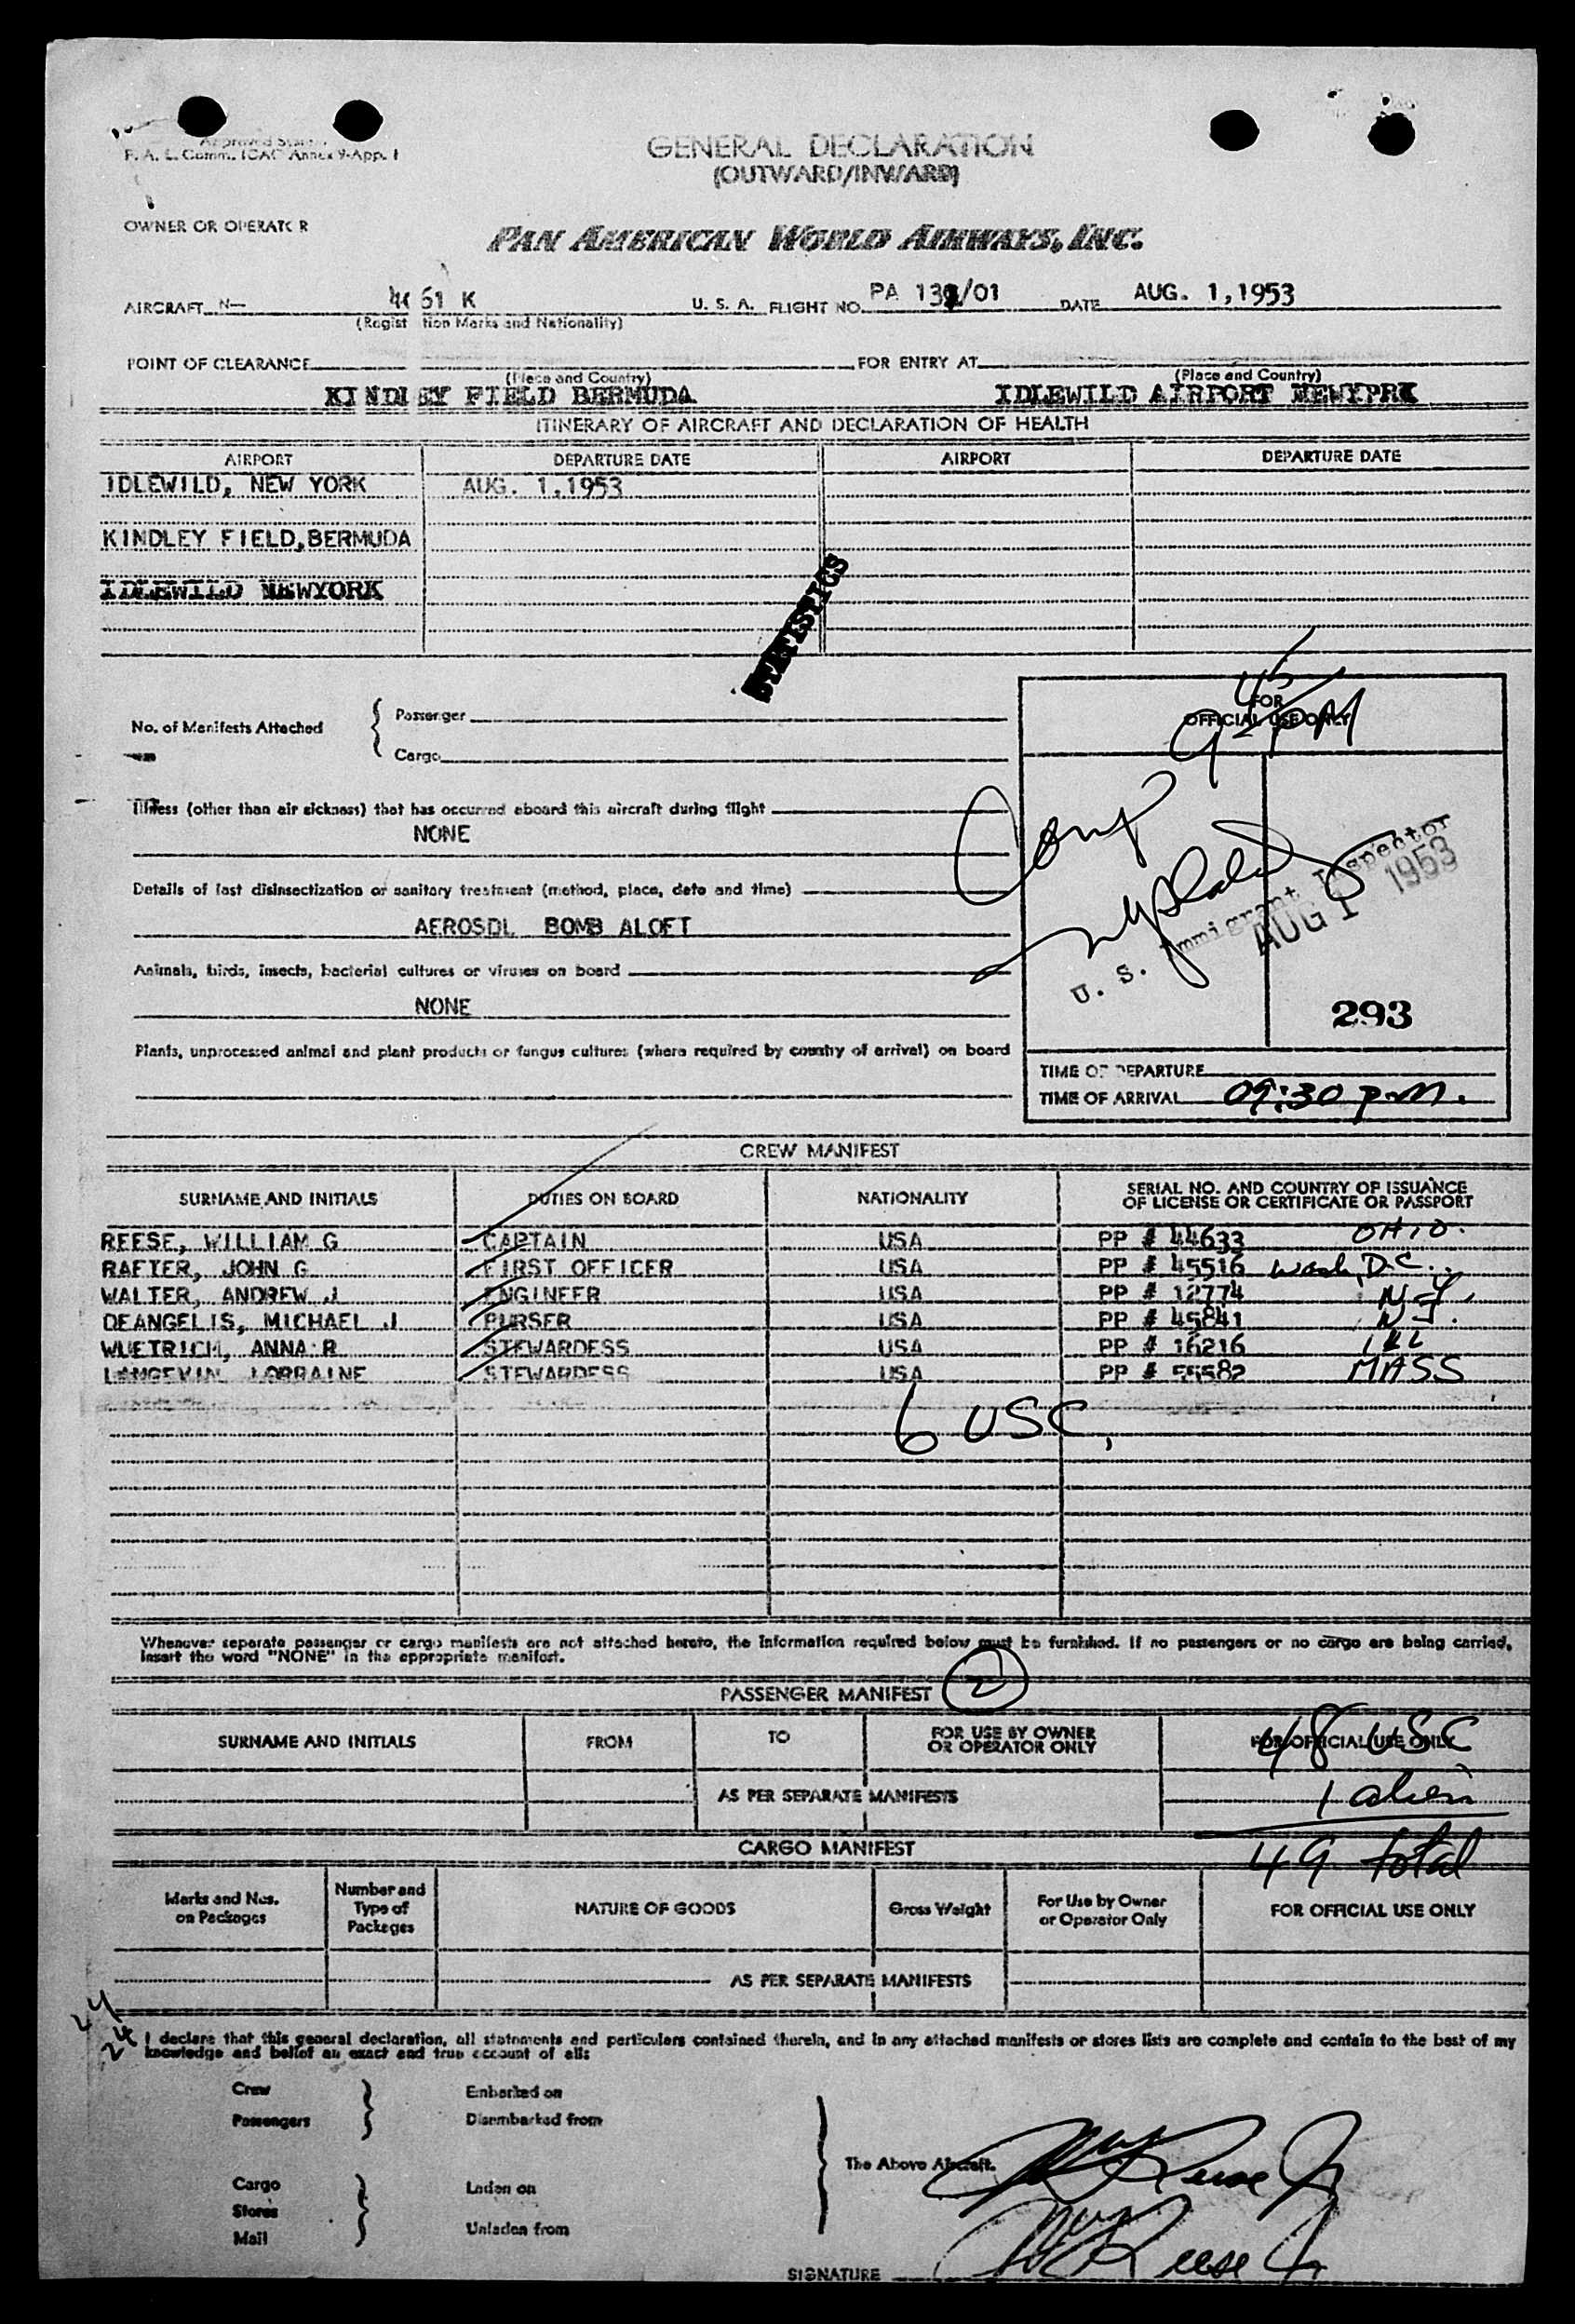 F. A. L. Comm. ICAO Annex 9-App. 1
GENERAL DECLARATION
(OUTWARD/INWARD)
OWNER OR OPERATOR
PAN AMERICAN WORLD AIRWAYS, INC.
AIRCRAFT N— 61 K U. S. A. FLIGHT NO. PA 131/01 DATE AUG. 1,1953
(Registration Marks and Nationality)
POINT OF CLEARANCE FOR ENTRY AT
(Place and Country) (Place and Country)
KINDLEY FIELD BERMUDA IDLEWILD AIRPORT NEWYPRK
ITINERARY OF AIRCRAFT AND DECLARATION OF HEALTH
AIRPORT DEPARTURE DATE AIRPORT DEPARTURE DATE
IDLEWILD, NEW YORK AUG. 1,1953
KINDLEY FIELD,BERMUDA
IDLEWILD NEWYORK
STATISTICS
No. of Manifests Attached { Passenger
Cargo
FOR
OFFICIAL USE ONLY
945 PM
Illness (other than air sickness) that has occurred aboard this aircraft during flight
NONE
Comp
Details of last disinsectization or sanitary treatment (method, place, date and time)
AEROSOL BOMB ALOFT
U. S. Immigrant Inspector
AUG 1 1953
Animals, birds, insects, bacterial cultures or viruses on board
NONE
293
Plants, unprocessed animal and plant products or fungus cultures (where required by country of arrival) on board
TIME OF DEPARTURE
TIME OF ARRIVAL 09:30 p.m.
CREW MANIFEST
SURNAME AND INITIALS DUTIES ON BOARD NATIONALITY SERIAL NO. AND COUNTRY OF ISSUANCE
OF LICENSE OR CERTIFICATE OR PASSPORT
REESE, WILLIAM G CAPTAIN USA PP # 44633 OHIO.
RAFTER, JOHN G FIRST OFFICER USA PP # 45516 Wash, D.C.
WALTER, ANDREW J ENGINEER USA PP # 12774 N.Y.
DEANGELIS, MICHAEL J PURSER USA PP # 45841 N.J.
WUETRICH, ANNA R STEWARDESS USA PP # 16216 ILL
LANGEVIN, LORRAINE STEWARDESS USA PP # 55582 MASS
6 USC,
Whenever separate passenger or cargo manifests are not attached hereto, the information required below must be furnished. If no passengers or no cargo are being carried,
insert the word "NONE" in the appropriate manifest.
PASSENGER MANIFEST 2
SURNAME AND INITIALS FROM TO FOR USE BY OWNER
OR OPERATOR ONLY FOR OFFICIAL USE ONLY
48 USC
AS PER SEPARATE MANIFESTS 1 alien
CARGO MANIFEST 49 total
Marks and Nos.
on Packages Number and
Type of
Packages NATURE OF GOODS Gross Weight For Use by Owner
or Operator Only FOR OFFICIAL USE ONLY
AS PER SEPARATE MANIFESTS
24
24
I declare that this general declaration, all statements and particulars contained therein, and in any attached manifests or stores lists are complete and contain to the best of my
knowledge and belief an exact and true account of all:
Crew } Embarked on
Passengers Disembarked from
The Above Aircraft.
Wm G Reese Jr
Cargo } Laden on
Stores
Mail Unladen from
SIGNATURE Wm G Reese Jr